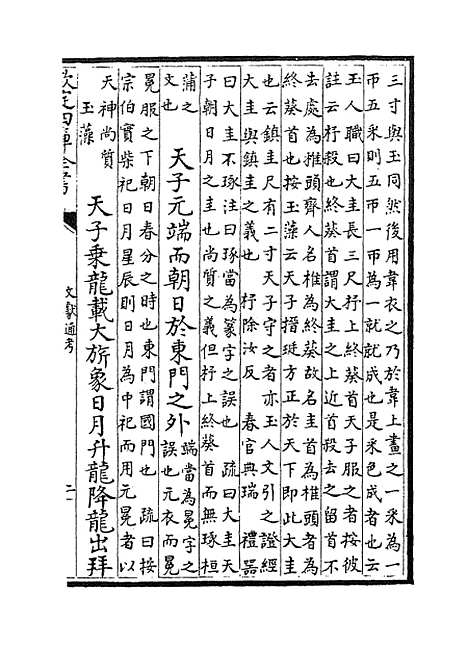 三寸與玉同然後用韋衣之乃於韋上畫之一采為一
帀五采則五帀一帀為一就就成也是采色成者也云
玉人職曰大圭長三尺杼上終葵首天子服之者按彼
註云杼殺也終葵首謂大圭之上近首殺去之留首不
去處為椎頭齊人名椎為終葵故名圭首為椎頭者為
終葵首也按玉藻云天子搢珽方正於天下即此大圭
也云鎮圭尺有二寸天子守之者亦玉人文引之證經
大圭與鎮圭之義也 杼除汝反 春官典瑞 禮器
曰大圭不琢注曰琢當為篆字之誤也 疏曰大圭天
子朝日月之圭也尚質之義但杼上終葵首而無琢桓
蒲之
文也
天子元端而朝日於東門之外
端當為冕字之
誤也元衣而冕
冕服之下朝日春分之時也東門謂國門也 疏曰按
宗伯實柴祀日月星辰則日月為中祀而用元冕者以
天神尚質
玉藻
天子乘龍載大旂象日月升龍降龍出拜
欽定四庫全書
文獻通考